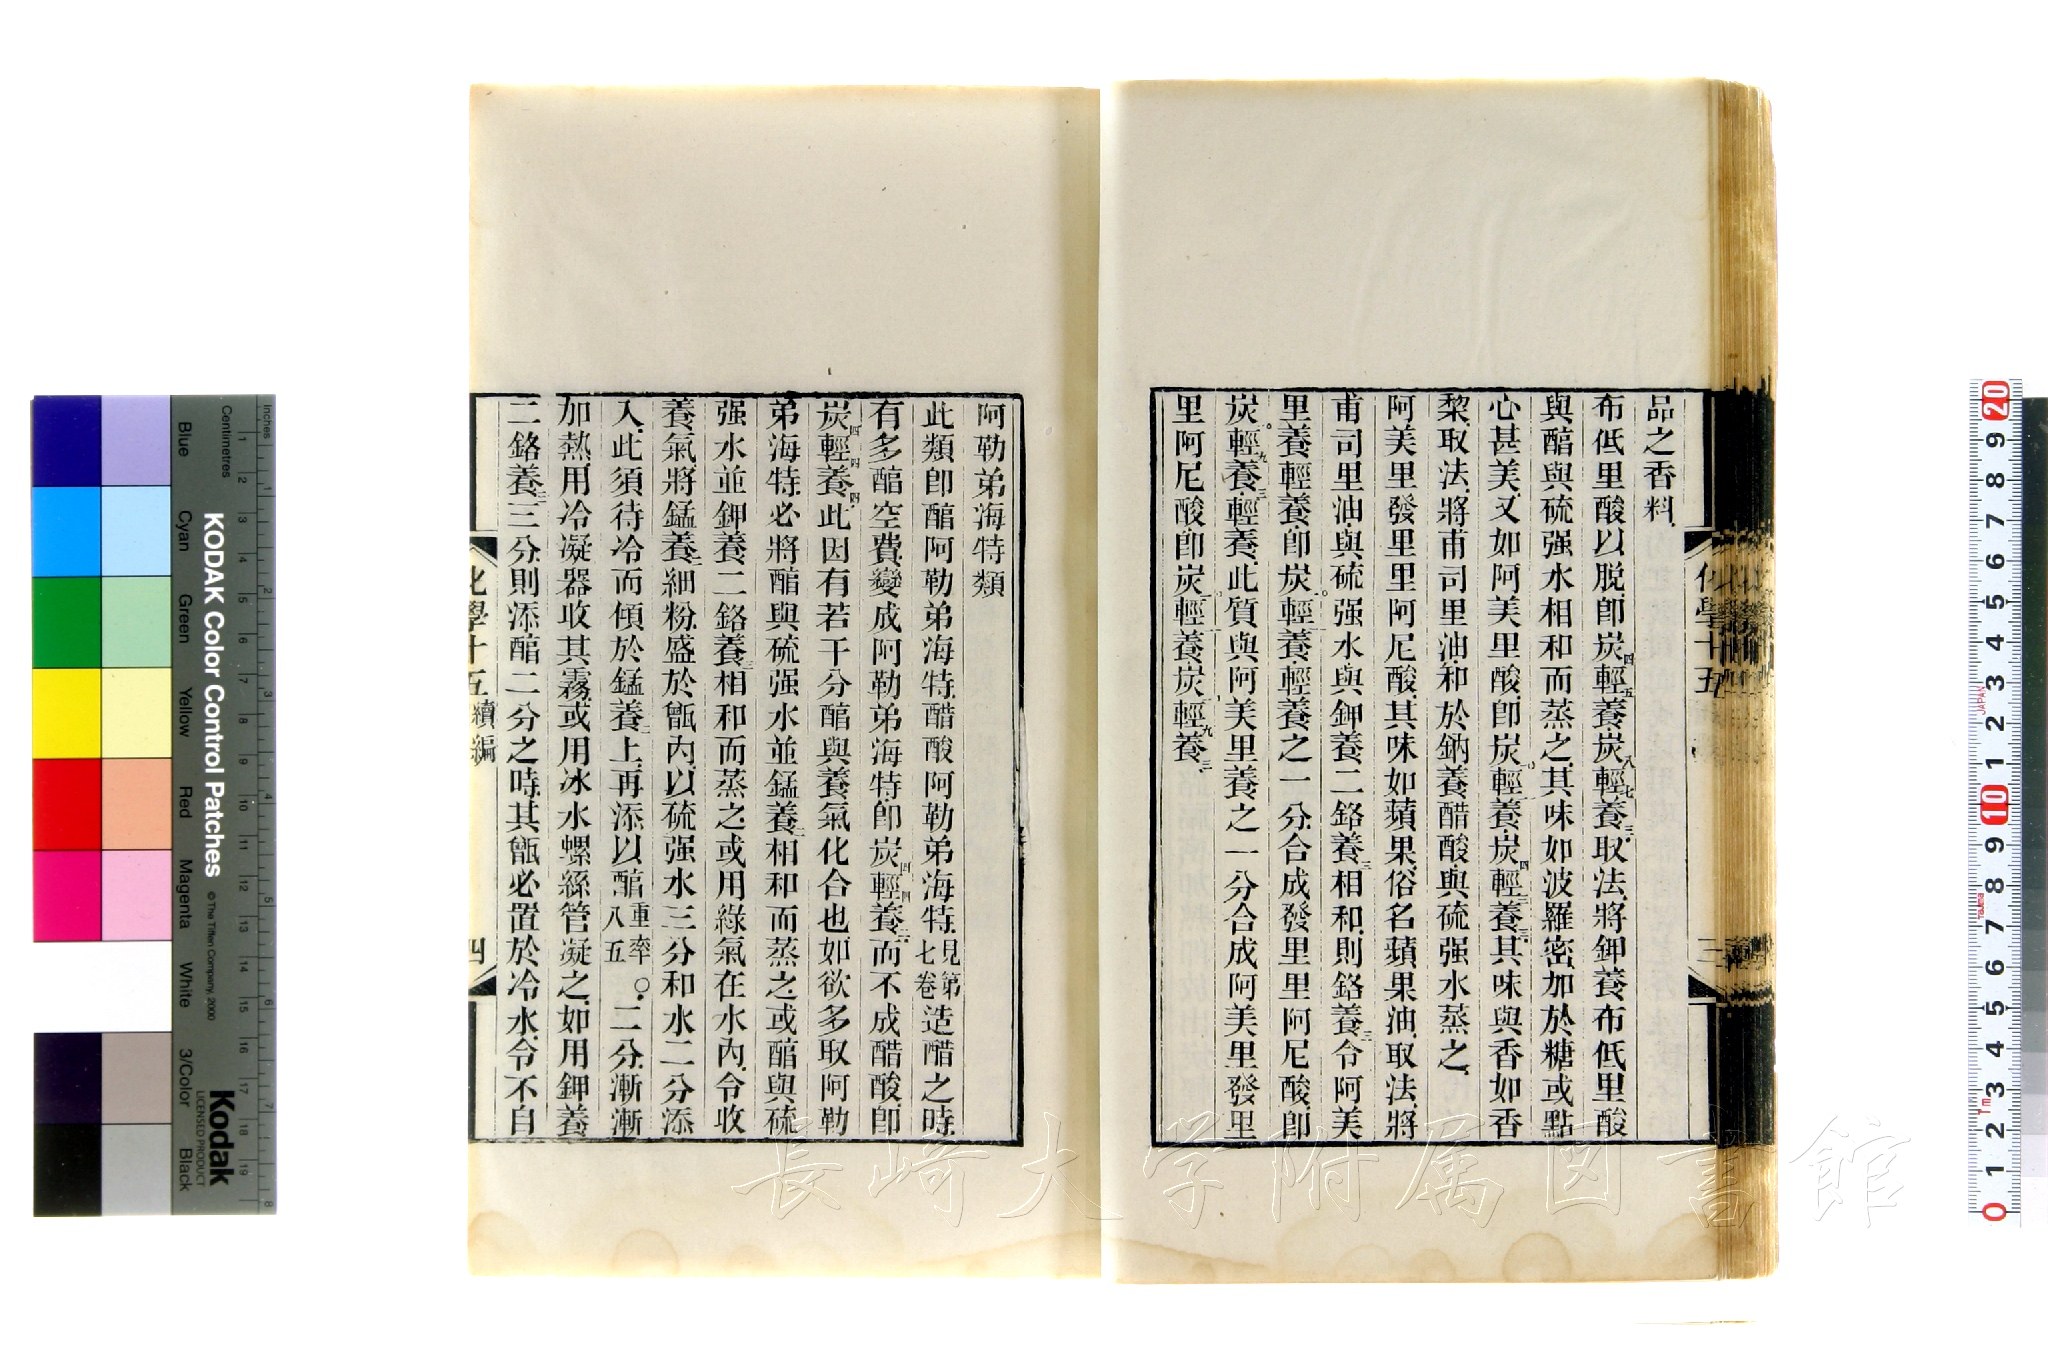 品之香料
布低里酸以脫卽炭四輕五養炭八輕七養三取法將鉀養布低里酸
與醕與硫强水相和而蒸之其味如波羅密加於糖或點
心甚美又如阿美里酸卽炭輕養炭四輕三養三其味與香如香
棃取法將甫司里油和於鈉養醋酸與硫强水蒸之
阿美里發里里阿尼酸其味如蘋果俗名蘋果油取法將
甫司里油與硫强水與鉀養二鉻養三相和則鉻養三令阿美
里養輕養卽炭輕養輕養之一分合成發里里阿尼酸卽
炭輕九養三輕養此質與阿美里養之一分合成阿美里發里
里阿尼酸卽炭輕養炭輕九養三
化學十五
三
阿勒弟海特類
此類卽醕阿勒弟海特醋酸阿勒弟海特見第七卷造醋之時
有多醕空費變成阿勒弟海特卽炭四輕四養二而不成醋酸卽
炭四輕四養四此因有若干分醕與養氣化合也如欲多取阿勒
弟海特必將醕與硫强水並錳養二相和而蒸之或醕與硫
强水並鉀養二鉻養三相和而蒸之或用綠氣在水內令收
養氣將錳養二細粉盛於甑內以硫强水三分和水二分添
入此須待冷而傾於錳養二上再添以醕重率八五〇二分漸漸
加熱用冷凝器收其霧或用冰水螺絲管凝之如用鉀養
二鉻養三三分則添醕二分之時其甑必置於冷水令不自
化學十五 續編
四
KODAK Color Control Patches
© The Tiffen Company, 2000
Kodak
LICENSED PRODUCT
Inches
Centimetres
Blue
Cyan
Green
Yellow
Red
Magenta
White
3/Color
Black
長崎大学附属図書館
JAPAN